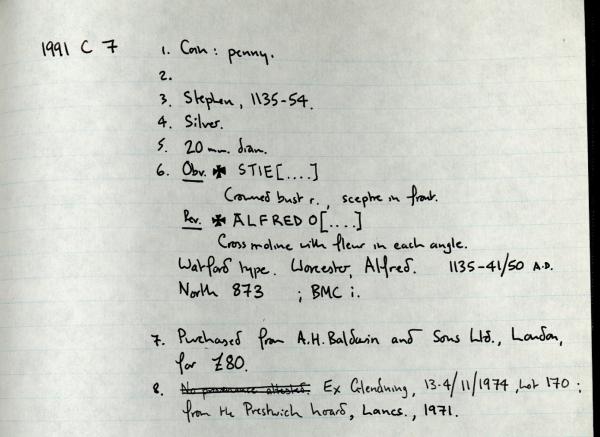 1991 C 7 1. Coin: penny.
2.
3. Stephen, 1135-54.
4. Silver.
5. 20 mm. diam.
6. Obv. ✠ STIE[....]
Crowned bust r., sceptre in front.
Rev. ✠ ALFRED O[....]
Cross moline with fleur in each angle.
Watford type. Worcester, Alfred. 1135-41/50 A.D.
North 873 ; BMC i.
7. Purchased from A.H. Baldwin and Sons Ltd., London,
for £80.
8. No provenance attested. Ex Glendining, 13-4/11/1974, Lot 170 ;
from the Prestwich hoard, Lancs., 1971.